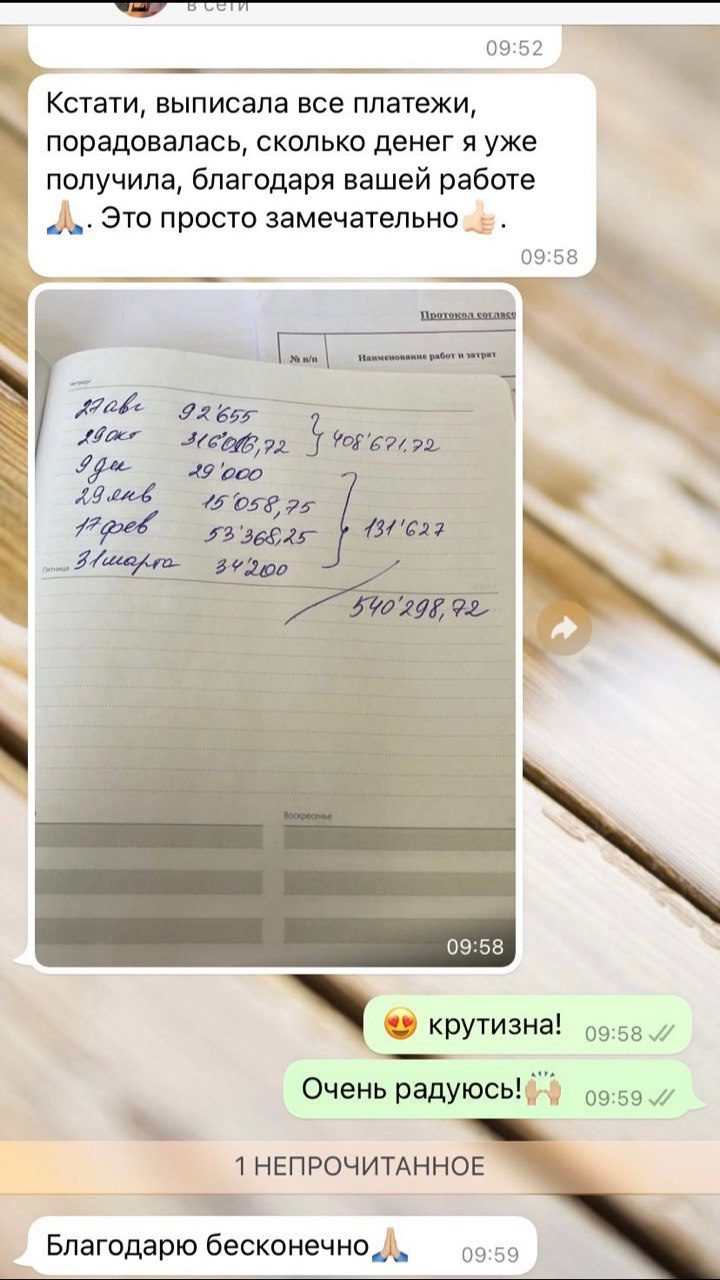 в сети
09:52
Кстати, выписала все платежи,
порадовалась, сколько денег я уже
получила, благодаря вашей работе
🙏🏻. Это просто замечательно👍🏻.
09:58
Протокол согласо
№ п/п Наименование работ и затрат
четверг
27 авг 92'655
29 окт 316'016,72 } 408'671.72
9 дек 29'000
29 янв 15'058,75
17 фев 53'368,25 } 131'627
Пятница 31 марта 34'200
540'298,72
Воскресенье
09:58
😍 крутизна! 09:58
Очень радуюсь!🙌🏻 09:59
1 НЕПРОЧИТАННОЕ
Благодарю бесконечно🙏🏻 09:59